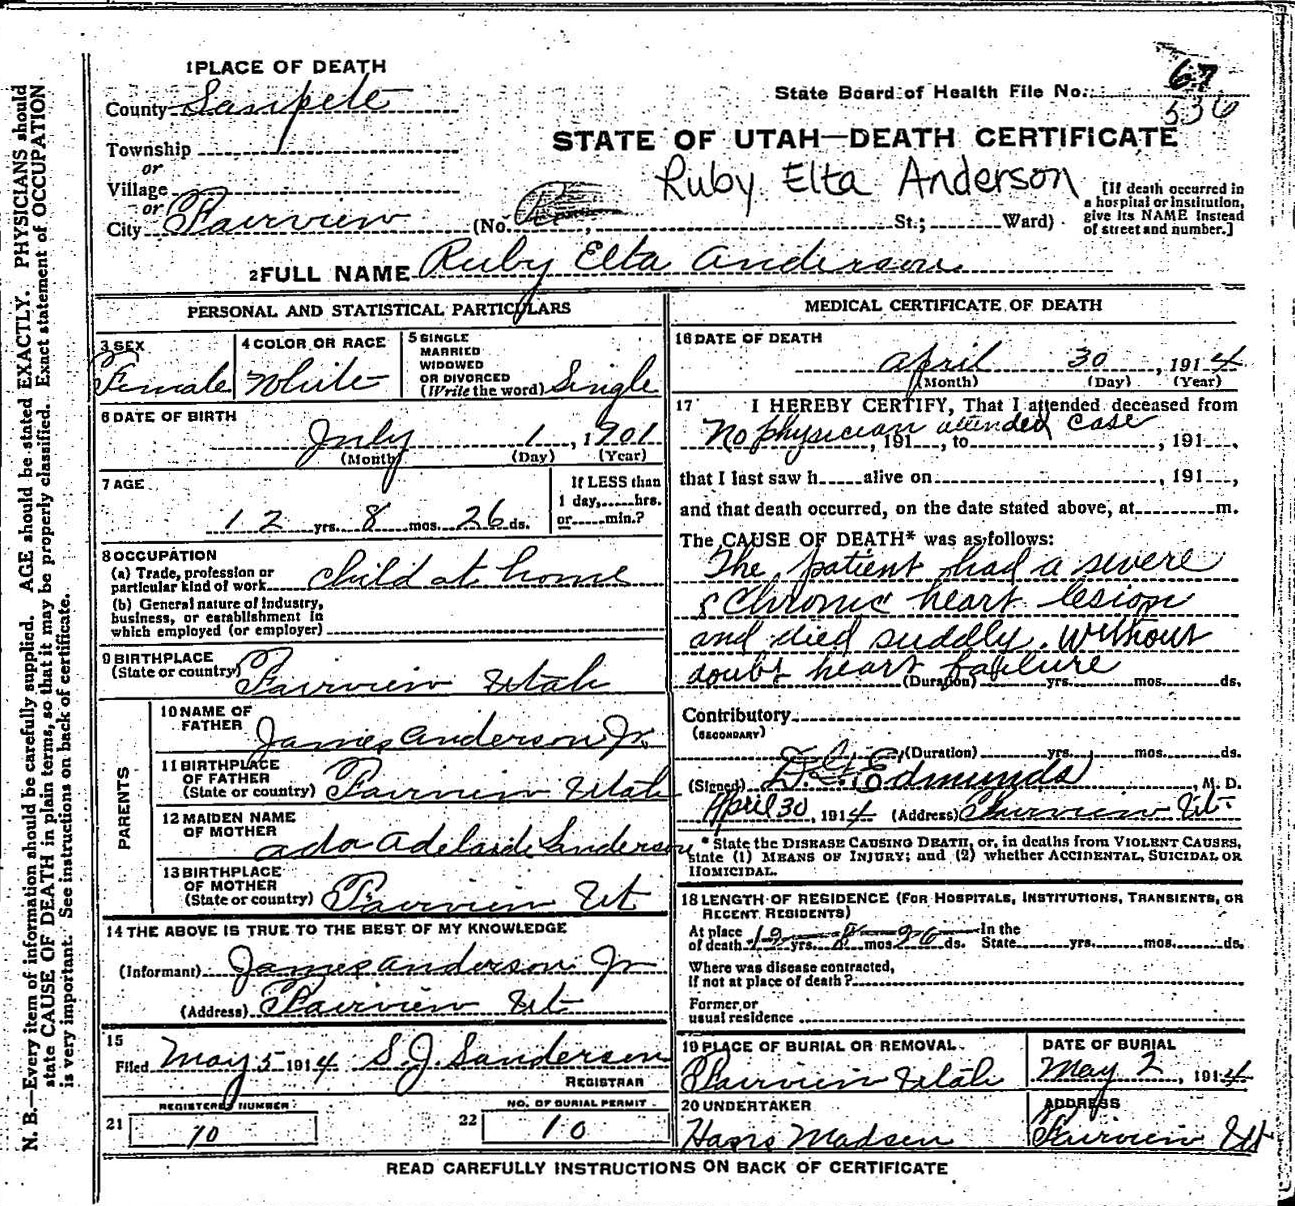 1 PLACE OF DEATH
County Sanpete
State Board of Health File No. 67
536
Township
STATE OF UTAH—DEATH CERTIFICATE
or
Village
Ruby Elta Anderson
or
City Fairview (No. , St.; Ward)
[If death occurred in a hospital or institution, give its NAME instead of street and number.]
2 FULL NAME Ruby Elta Anderson
PERSONAL AND STATISTICAL PARTICULARS
3 SEX Female
4 COLOR OR RACE White
5 SINGLE MARRIED WIDOWED OR DIVORCED (Write the word) Single
6 DATE OF BIRTH
July 1, 1901
(Month) (Day) (Year)
7 AGE
12 yrs. 8 mos. 26 ds.
If LESS than 1 day, hrs. or min.?
8 OCCUPATION
(a) Trade, profession or particular kind of work child at home
(b) General nature of Industry, business, or establishment in which employed (or employer)
9 BIRTHPLACE (State or country) Fairview Utah
PARENTS
10 NAME OF FATHER James Anderson Jr.
11 BIRTHPLACE OF FATHER (State or country) Fairview Utah
12 MAIDEN NAME OF MOTHER Ada Adelaide Sanderson
13 BIRTHPLACE OF MOTHER (State or country) Fairview Ut
14 THE ABOVE IS TRUE TO THE BEST OF MY KNOWLEDGE
(Informant) James Anderson Jr
(Address) Fairview Ut
15
Filed May 5 1914 S. J. Sanderson
REGISTRAR
21 REGISTERED NUMBER 10
22 NO. OF BURIAL PERMIT 10
MEDICAL CERTIFICATE OF DEATH
16 DATE OF DEATH
April 30, 1914
(Month) (Day) (Year)
17 I HEREBY CERTIFY, That I attended deceased from
No physician attended case
, 191 , to , 191 ,
that I last saw h alive on , 191 ,
and that death occurred, on the date stated above, at m.
The CAUSE OF DEATH* was as follows:
The patient had a severe
& Chronic heart lesion
and died suddly. Without
doubt heart failure
(Duration) yrs. mos. ds.
Contributory
(SECONDARY)
(Duration) yrs. mos. ds.
(Signed) Edmunds, M. D.
April 30, 1914 (Address) Fairview Ut.
* State the DISEASE CAUSING DEATH, or, in deaths from VIOLENT CAUSES,
state (1) MEANS OF INJURY; and (2) whether ACCIDENTAL, SUICIDAL OR
HOMICIDAL.
18 LENGTH OF RESIDENCE (FOR HOSPITALS, INSTITUTIONS, TRANSIENTS, OR
RECENT RESIDENTS)
At place of death 12 yrs. 8 mos. 26 ds. In the State yrs. mos. ds.
Where was disease contracted,
If not at place of death?
Former or
usual residence
19 PLACE OF BURIAL OR REMOVAL
Fairview Utah
DATE OF BURIAL
May 2, 1914
20 UNDERTAKER
Hans Madsen
ADDRESS
Fairview Ut
READ CAREFULLY INSTRUCTIONS ON BACK OF CERTIFICATE
N. B.—Every item of information should be carefully supplied. AGE should be stated EXACTLY. PHYSICIANS should
state CAUSE OF DEATH in plain terms, so that it may be properly classified. Exact statement of OCCUPATION
is very important. See instructions on back of certificate.